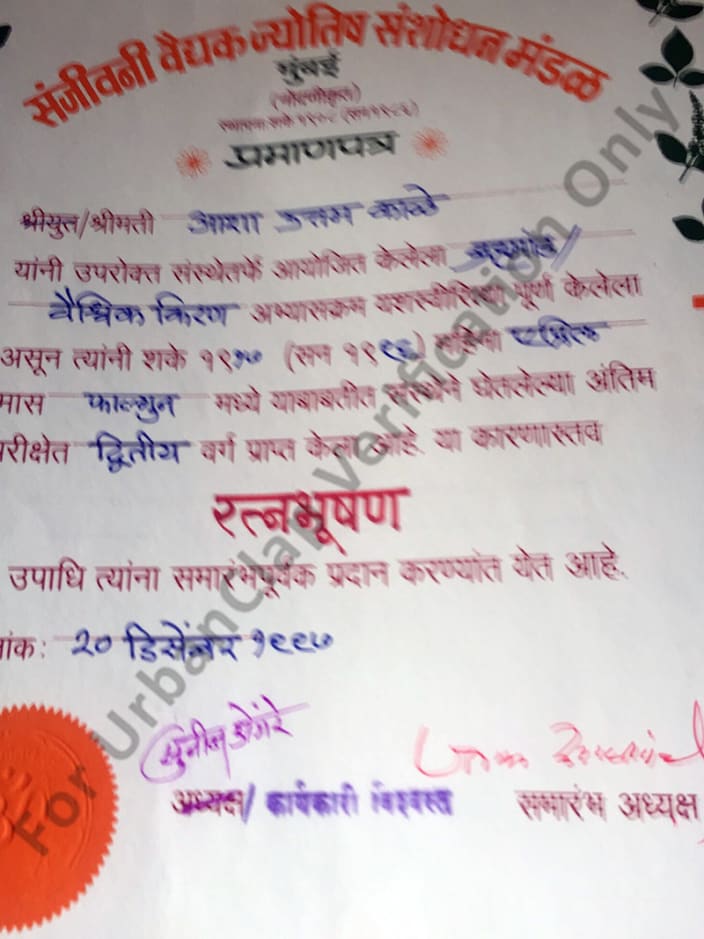 संजीवनी वैद्यक ज्योतिष संशोधन मंडळ
मुंबई
(नोंदणीकृत)
प्रमाणपत्र
श्रीयुत/श्रीमती आशा उत्तम काळे
यांनी उपरोक्त संस्थेतर्फे आयोजित केलेला
वैश्विक किरण अभ्यासक्रम यशस्वीरित्या पूर्ण केलेला
असून त्यांनी शके १९१७ (सन १९९६) महिना एप्रिल
मास फाल्गुन मध्ये याबाबतीत संस्थेने घेतलेल्या अंतिम
परीक्षेत द्वितीय वर्ग प्राप्त केला आहे. या कारणास्तव
रत्नभूषण
उपाधि त्यांना समारंभपूर्वक प्रदान करण्यांत येत आहे.
ांक: २० डिसेंबर १९९७
सुनील डोंगरे
अध्यक्ष/ कार्यकारी विश्वस्त
समारंभ अध्यक्ष
For UrbanClap Verification Only